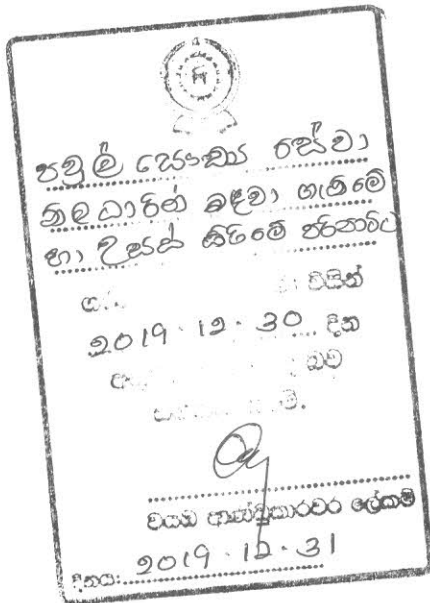 පවුල් සෞඛ්‍ය සේවා
නිලධාරින් බඳවා ගැනීමේ
හා උසස් කිරීමේ පරිපාටිය
විසින්
2019.12.30 දින
බව
වයඹ ආණ්ඩුකාරවර ලේකම්
දිනය: 2019.12.31